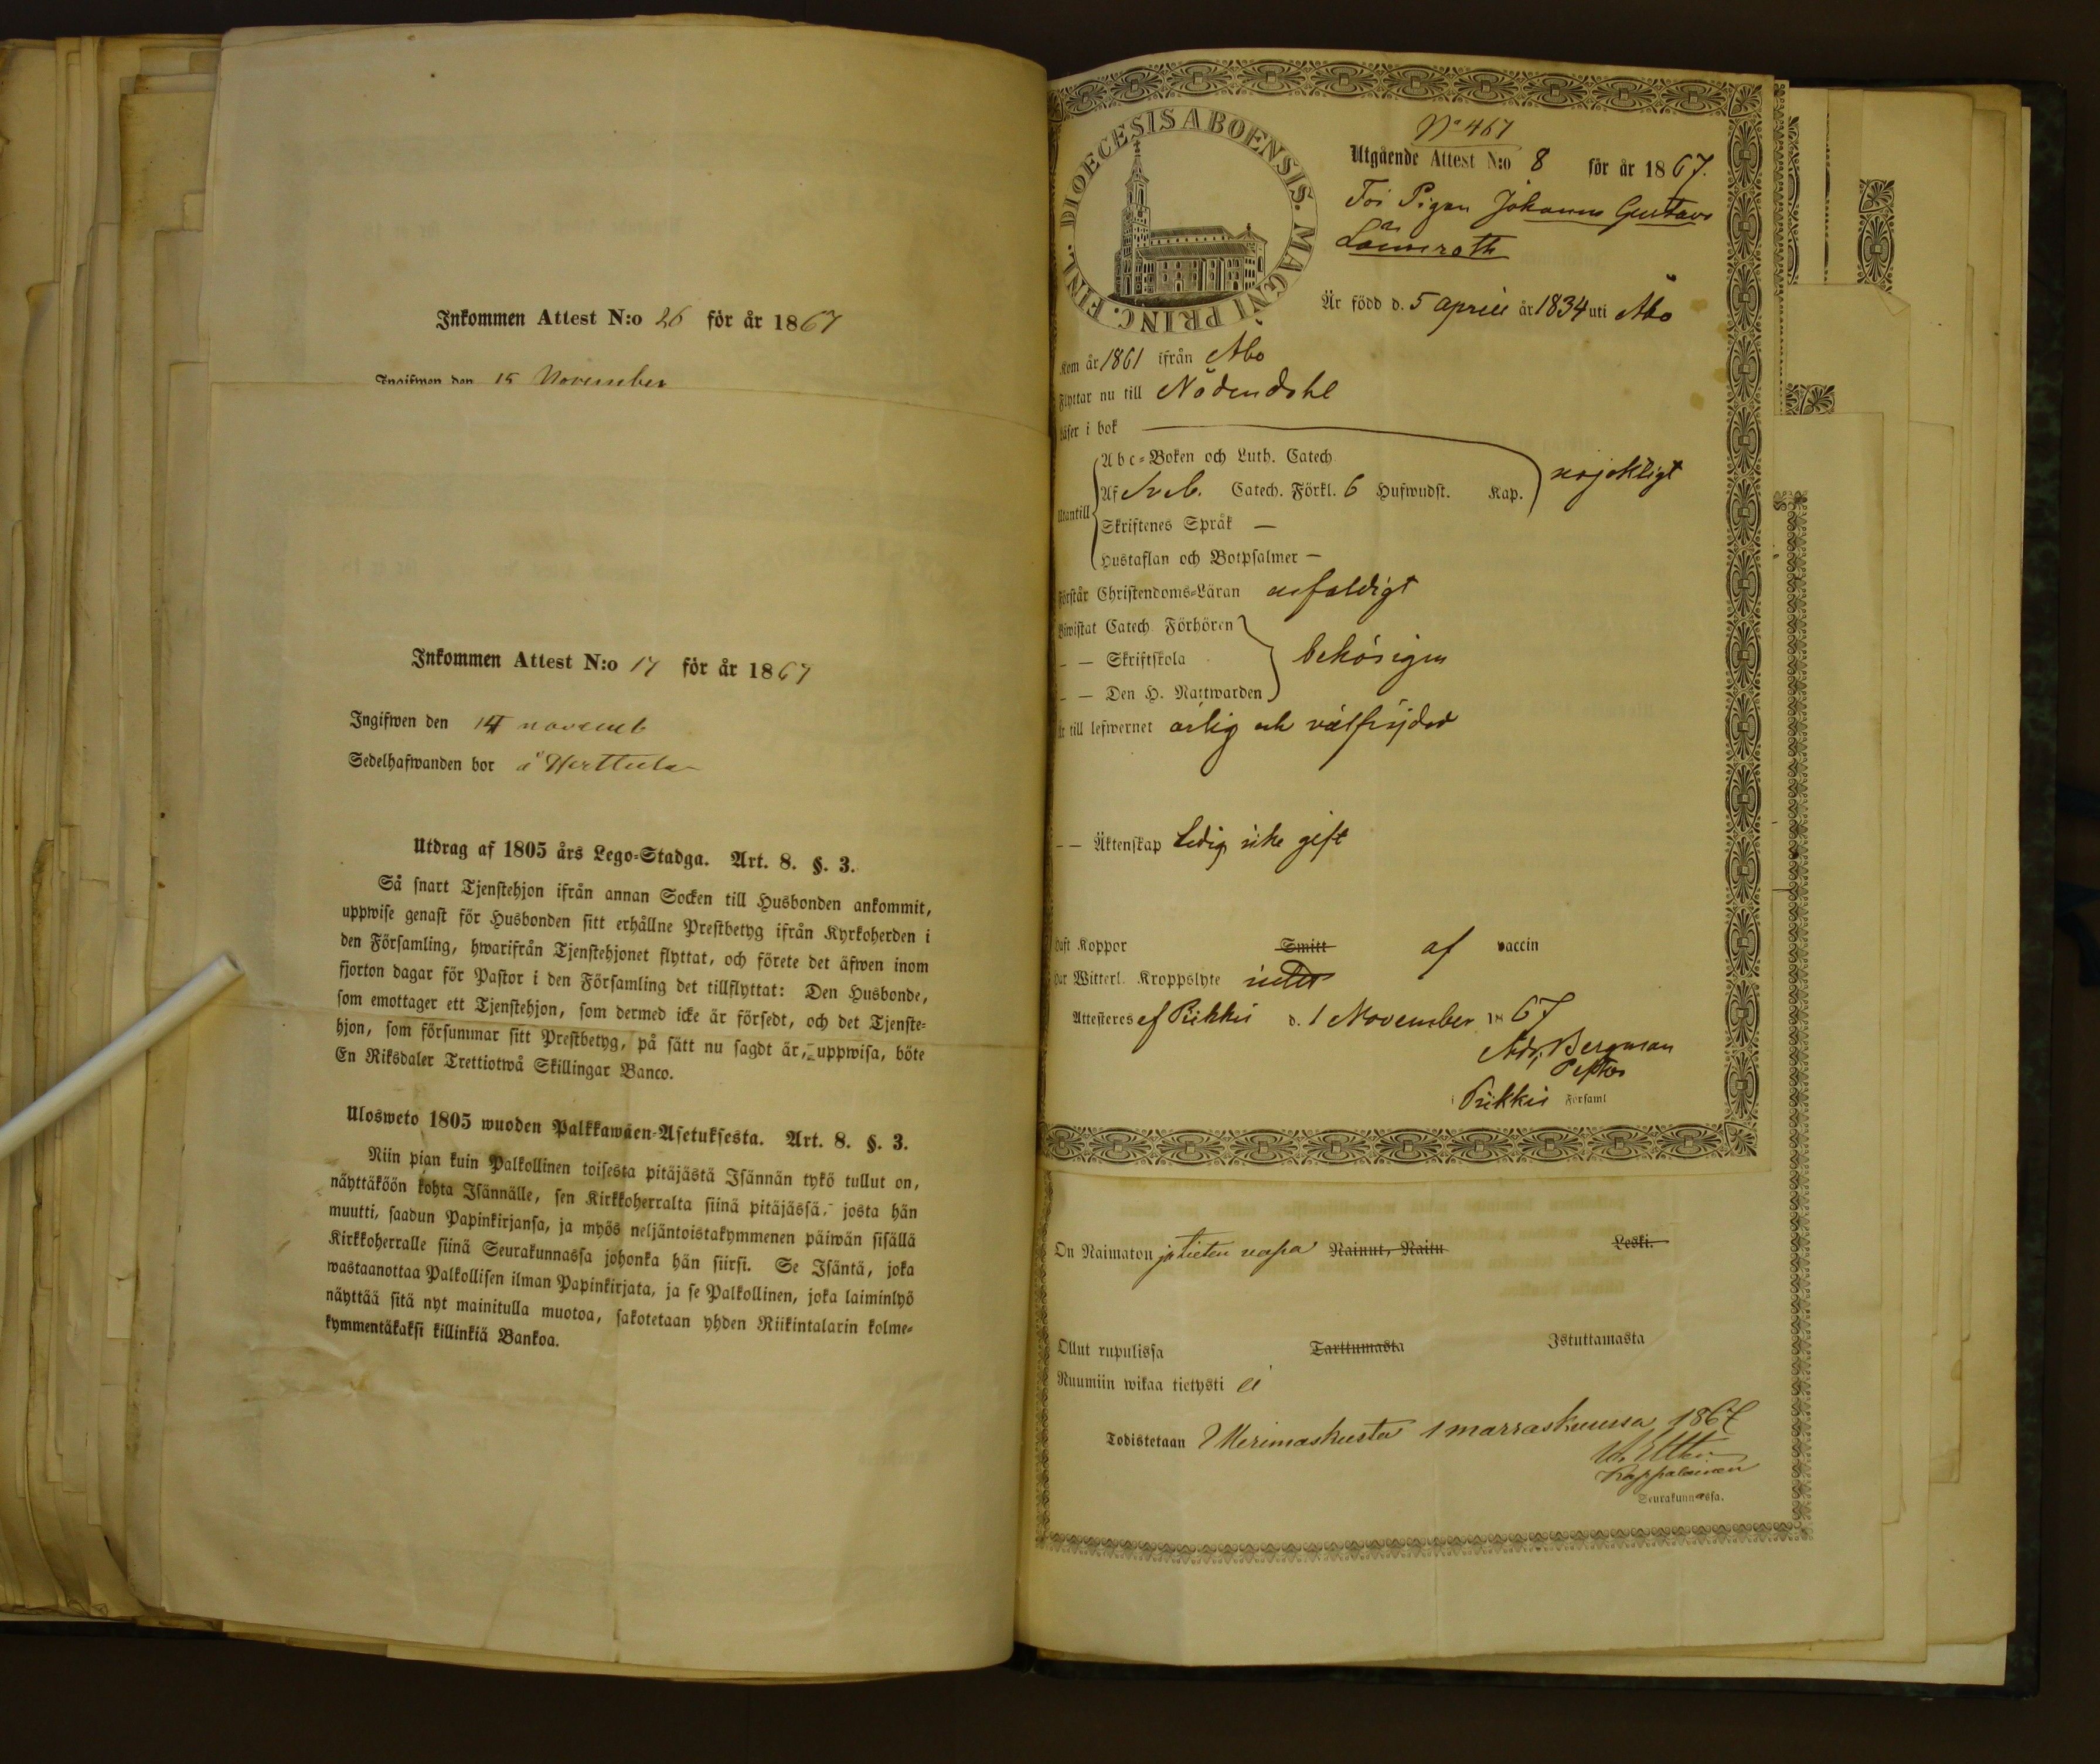 Inkommen Attest N:o 26 för år 1867
Ingifwen den 15 November
Inkommen Attest N:o 17 för år 1867
Ingifwen den 14 novemb
Sedelhafwanden bor å Herttula
Utdrag af 1805 års Lego-Stadga. Art. 8. §. 3.
Så snart Tjenstehjon ifrån annan Socken till Husbonden ankommit,
uppwise genast för Husbonden sitt erhållne Prestbetyg ifrån Kyrkoherden i
den Församling, hwarifrån Tjenstehjonet flyttat, och förete det äfwen inom
fjorton dagar för Pastor i den Församling det tillflyttat: Den Husbonde,
som emottager ett Tjenstehjon, som dermed icke är försedt, och det Tjenste-
hjon, som försummar sitt Prestbetyg, på sätt nu sagdt är, uppwisa, böte
En Riksdaler Trettiotwå Skillingar Banco.
Ulosweto 1805 wuoden Palkkawäen-Asetuksesta. Art. 8. §. 3.
Niin pian kuin Palkollinen toisesta pitäjästä Isännän tykö tullut on,
näyttäköön kohta Isännälle, sen Kirkkoherralta siinä pitäjässä, josta hän
muutti, saadun Papinkirjansa, ja myös neljäntoistakymmenen päiwän sisällä
Kirkkoherralle siinä Seurakunnassa johonka hän siirsi. Se Isäntä, joka
wastaanottaa Palkollisen ilman Papinkirjata, ja se Palkollinen, joka laiminlyö
näyttää sitä nyt mainitulla muotoa, sakotetaan yhden Riikintalarin kolme-
kymmentäkaksi killinkiä Bankoa.
FINL. DIOECESIS ABOENSIS. MAGNI PRINC.
No 467
Utgående Attest N:o 8 för år 1867.
För Pigan Johanna Gustava
Lännroth
Är född d. 5 april år 1834 uti Åbo
Kom år 1861 ifrån Åbo
Flyttar nu till Nådendahl
Läser i bok
Abc-Boken och Luth. Catech.
Utantill Af Sveb. Catech. Förkl. 6 Hufwudst. Kap. nöjaktligt
Skriftenes Språk —
Hustaflan och Botpsalmer —
Förstår Christendoms-Läran enfaldigt
Biwistat Catech. Förhören
— — Skriftskola behörigen
— — Den H. Nattwarden
Är till lefwernet ärlig och välfräjdad
— — Äktenskap ledig icke gift
Haft Koppor Smitt af vaccin
Har Witterl. Kroppslyte intet
Attesteras af Pikkis d. 1 November 1867
Adr. Bergman
i Pikkis Församl
On Naimaton ja tieten vapa Nainut, Naitu Leski.
Ollut rupulissa Tarttumasta Istuttamasta
Ruumiin wikaa tietysti ei
Todistetaan Merimaskusta 1 marraskuussa 1867
Kappalainen
Seurakunnassa.